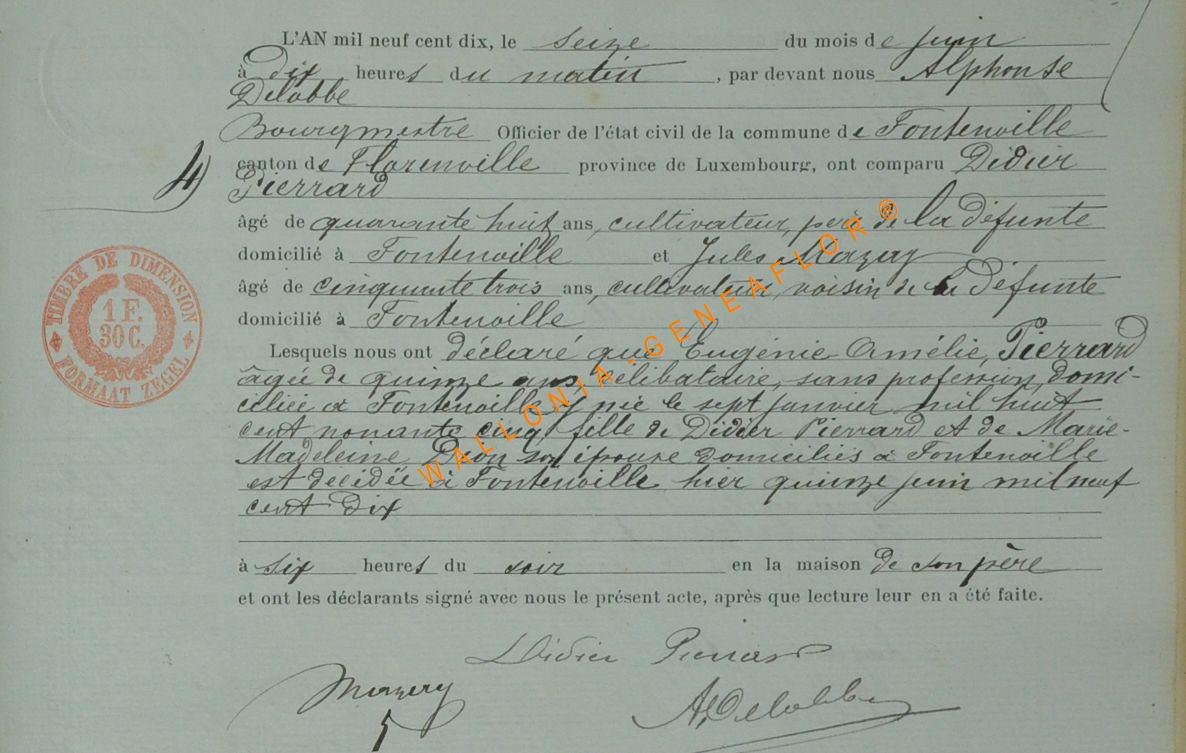 L'AN mil neuf cent dix, le seize du mois de juin
à dix heures du matin, par devant nous Alphonse
Delobbe
Bourgmestre Officier de l'état civil de la commune de Fontenoille
canton de Florenville province de Luxembourg, ont comparu Didier
4)
Pierrard
âgé de quarante huit ans, cultivateur, père de la défunte
domicilié à Fontenoille et Jules Mazay
âgé de cinquante trois ans, cultivateur, voisin de la défunte
domicilié à Fontenoille
TIMBRE DE DIMENSION
1 F.
30 C.
FORMAAT ZEGEL
Lesquels nous ont déclaré que Eugénie Amélie, Pierrard
âgée de quinze ans célibataire, sans profession, domi-
ciliée à Fontenoille y née le sept janvier mil huit
cent nonante cinq fille de Didier Pierrard et de Marie-
Madeleine son épouse domiciliés à Fontenoille
est décédée à Fontenoille hier quinze juin mil neuf
cent dix
à six heures du soir en la maison de son père
et ont les déclarants signé avec nous le présent acte, après que lecture leur en a été faite.
Didier Pierrard
A, Delobbe
WALLONIA - GENEAFLOR ®